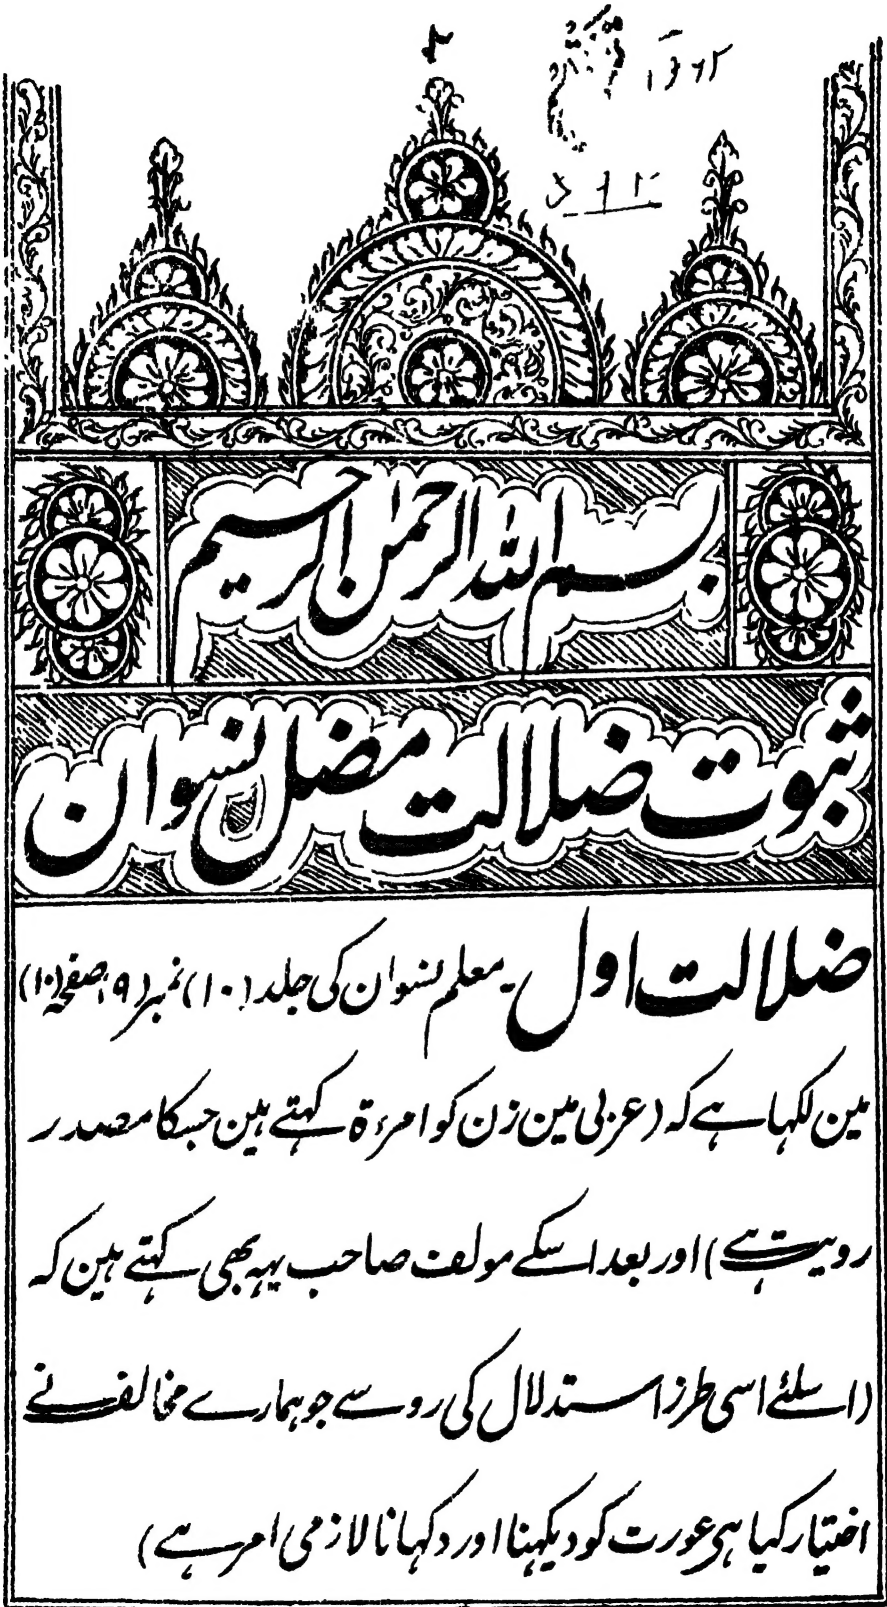 ۱۳۶۲
بسم الله الرحمن الرحيم
ثبوت ضلالت مضل نسوان
ضلالت اول ۔ معلم نسوان کی جلد (۱۰) نمبر (۹) صفحہ (۱۰)
مین لکہا ہے کہ (عربی مین زن کو امرءۃ کہتے ہین جسکا مصدر
رویت ہے) اور بعد اسکے مولف صاحب یہہ بھی کہتے ہین کہ
(اسلئے اسی طرز استدلال کی رو سے جو ہمارے مخالف نے
اختیار کیا ہی عورت کو دیکہنا اور دکہانا لازمی امر ہے)